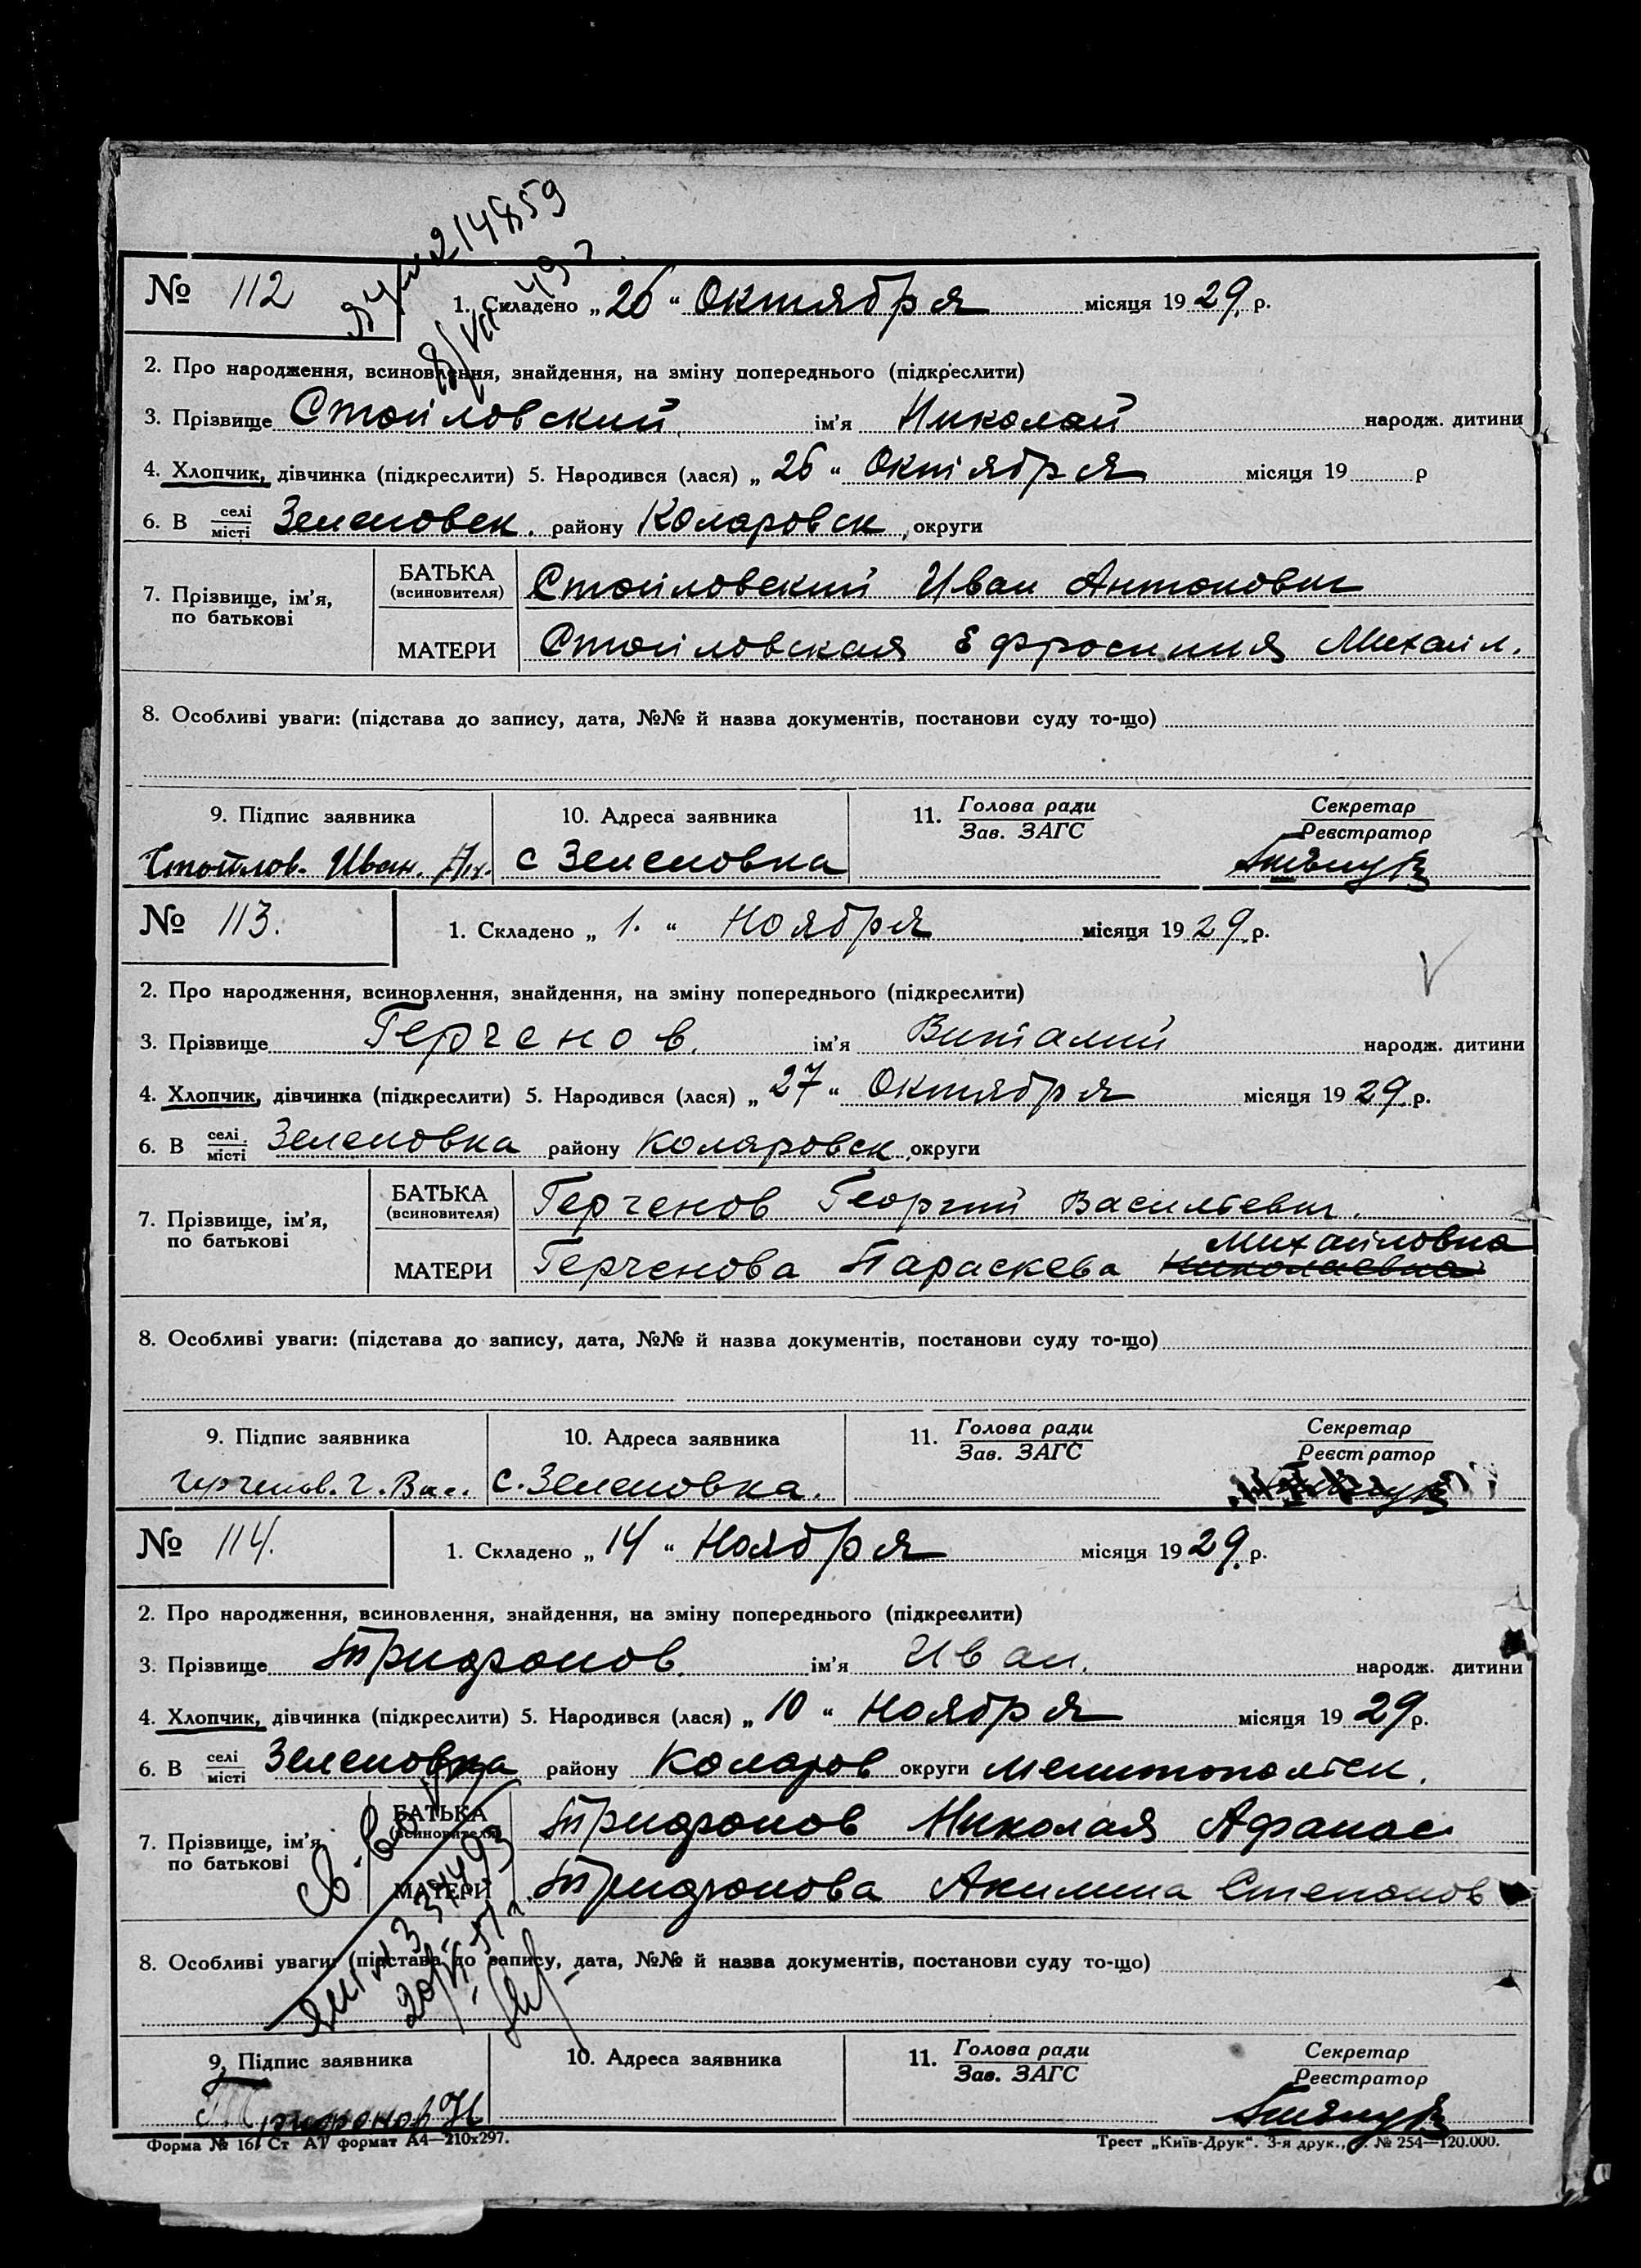 214859
49
№ 112 1. Складено „ 26 “ Октября місяця 19 29. р.
8/VII
2. Про народження, всиновлення, знайдення, на зміну попереднього (підкреслити)
3. Прізвище Стойловский ім'я Николай народж. дитини
4. Хлопчик, дівчинка (підкреслити) 5. Народився (лася) „ 26 “ Октября місяця 19 р
6. В селі місті Зеленовск. району Коларовск, округи
7. Прізвище, ім'я, по батькові
БАТЬКА (всиновителя) Стойловский Иван Антонович
МАТЕРИ Стойловская Ефросиния Михайл.
8. Особливі уваги: (підстава до запису, дата, №№ й назва документів, постанови суду то-що)
9. Підпис заявника 10. Адреса заявника 11. Голова ради Зав. ЗАГС Секретар Реєстратор
Стойлов. Иван. Ан. с Зеленовка
№ 113. 1. Складено „ 1. “ Ноября місяця 19 29. р.
2. Про народження, всиновлення, знайдення, на зміну попереднього (підкреслити)
3. Прізвище Герченов. ім'я Виталий народж. дитини
4. Хлопчик, дівчинка (підкреслити) 5. Народився (лася) „ 27 “ Октября місяця 19 29. р.
6. В селі місті Зеленовка району Коларовск, округи
7. Прізвище, ім'я, по батькові
БАТЬКА (всиновителя) Герченов Георгий Васильевич.
Михайловна
МАТЕРИ Герченова Параскева Николаевна
8. Особливі уваги: (підстава до запису, дата, №№ й назва документів, постанови суду то-що)
9. Підпис заявника 10. Адреса заявника 11. Голова ради Зав. ЗАГС Секретар Реєстратор
Герченов. Г. Вас. с. Зеленовка.
№ 114. 1. Складено „ 14 “ Ноября місяця 19 29. р.
2. Про народження, всиновлення, знайдення, на зміну попереднього (підкреслити)
3. Прізвище Трифонов. ім'я Иван. народж. дитини
4. Хлопчик, дівчинка (підкреслити) 5. Народився (лася) „ 10 “ Ноября місяця 19 29 р.
6. В селі місті Зеленовка району Коларов округи Мелитопольск.
7. Прізвище, ім'я, по батькові
БАТЬКА (всиновителя) Трифонов Николая Афанас
МАТЕРИ Трифонова Акилина Степанов
8. Особливі уваги: (підстава до запису, дата, №№ й назва документів, постанови суду то-що)
9. Підпис заявника 10. Адреса заявника 11. Голова ради Зав. ЗАГС Секретар Реєстратор
Трифонов Н
Форма № 16. Ст А1 формат А4—210х297. Трест „Київ-Друк“. 3-я друк., № 254—120.000.